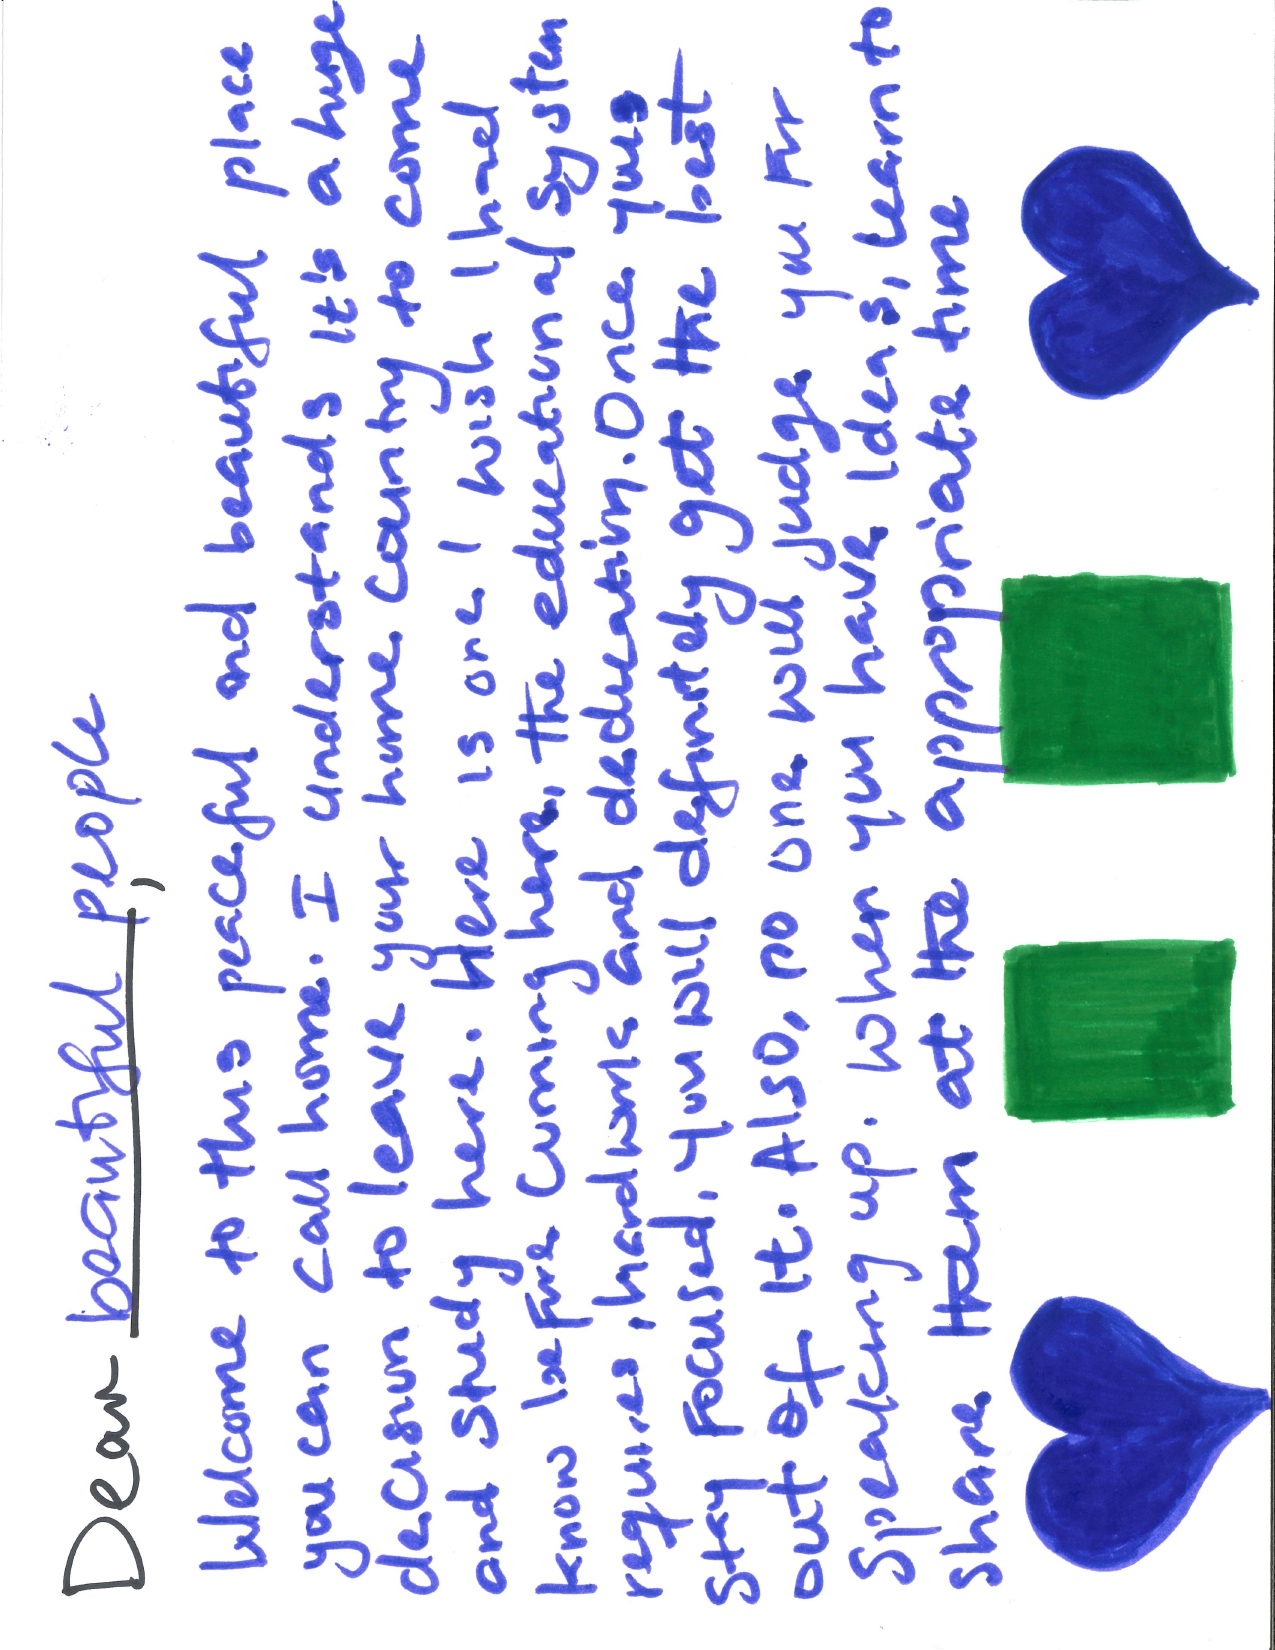 Dear beautiful people,
Welcome to this peaceful and beautiful place
you can call home. I understands it's a huge
decision to leave your home country to come
and study here. Here is one I wish I had
know before coming here, the educational system
requires, hardwork and dedication. Once you
stay focused, you will definitely get the best
out of it. Also, no one will judge you for
speaking up. When you have ideas, learn to
share them at the appropriate time